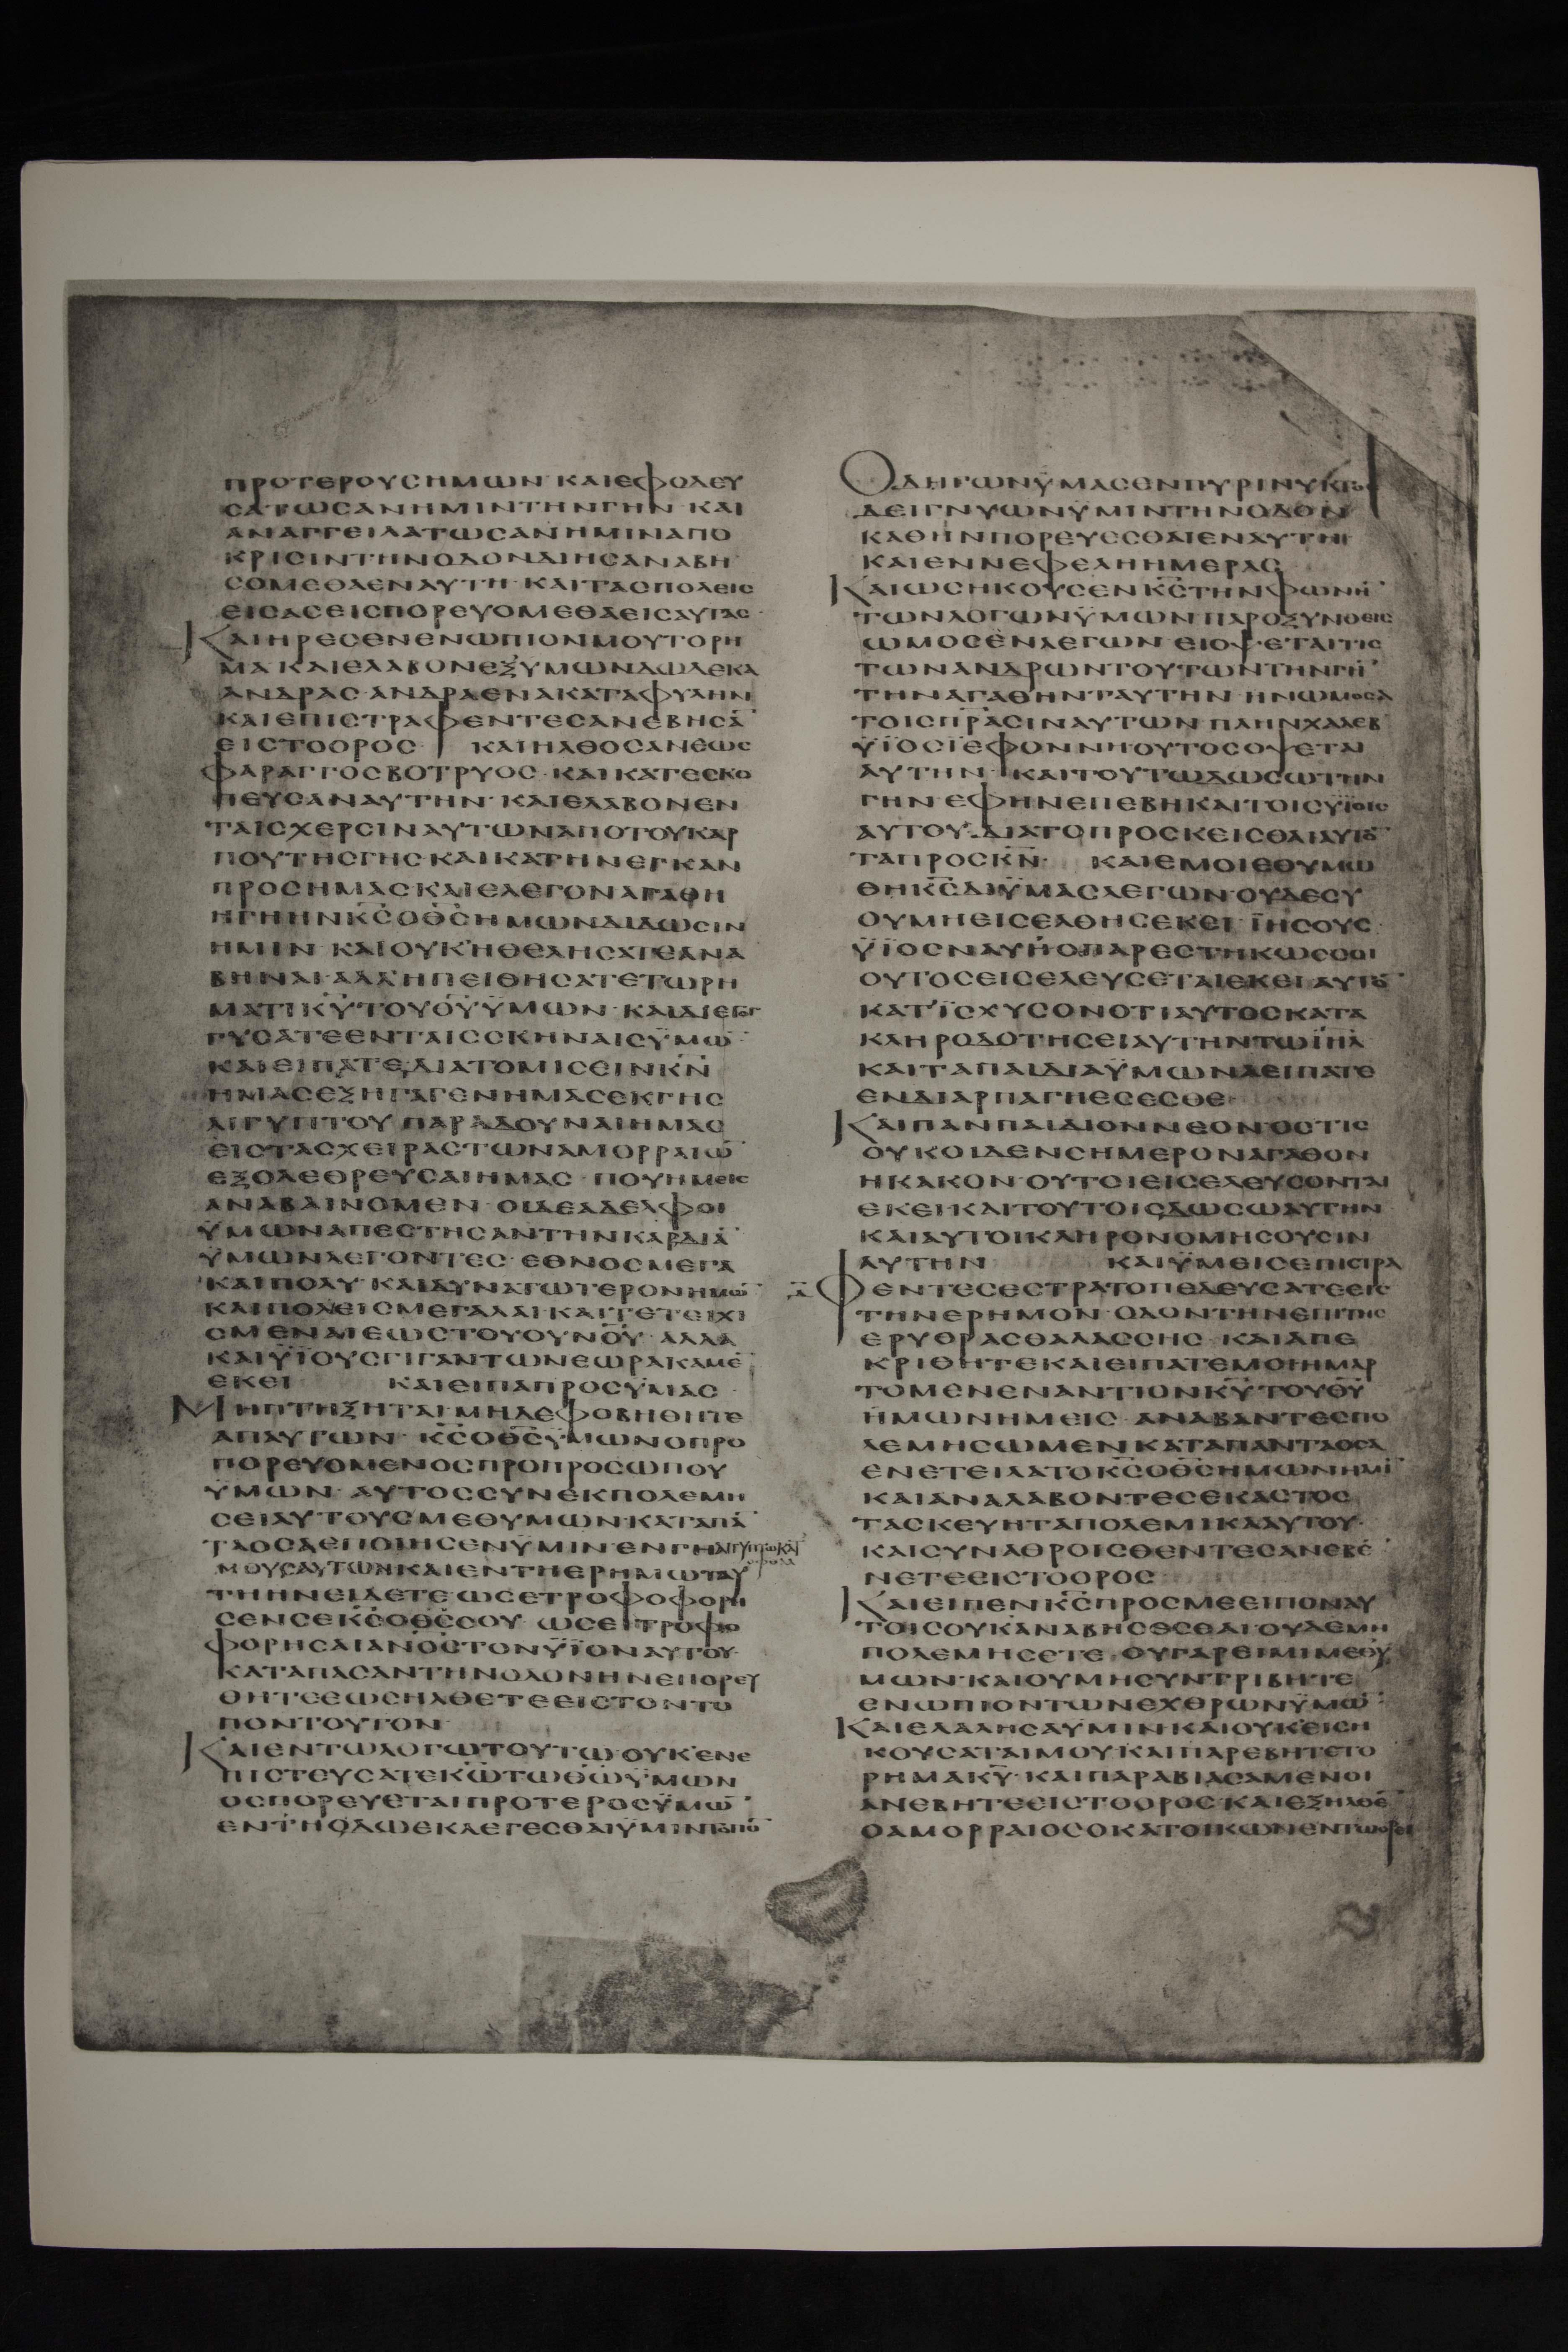 ΠΡΟΤΕΡΟΥΣΗΜΩΝ·ΚΑΙΕΦΟΔΕΥ
ΣΑΤΩΣΑΝΗΜΙΝΤΗΝΓΗΝ·ΚΑΙ
ΑΝΑΓΓΕΙΛΑΤΩΣΑΝΗΜΙΝΑΠΟ
ΚΡΙΣΙΝΤΗΝΟΔΟΝΔΙΗΣΑΝΑΒΗ
ΣΟΜΕΘΑΕΝΑΥΤΗ·ΚΑΙΤΑΣΠΟΛΕΙΣ
ΕΙΣΑΣΕΙΣΠΟΡΕΥΟΜΕΘΑΕΙΣΑΥΤΑΣ·
ΚΑΙΗΡΕΣΕΝΕΝΩΠΙΟΝΜΟΥΤΟΡΗ
ΜΑΚΑΙΕΛΑΒΟΝΕΞΥΜΩΝΔΩΔΕΚΑ
ΑΝΔΡΑΣ·ΑΝΔΡΑΕΝΑΚΑΤΑΦΥΛΗΝ
ΚΑΙΕΠΙΣΤΡΑΦΕΝΤΕΣΑΝΕΒΗΣΑ̅
ΕΙΣΤΟΟΡΟΣ· ΚΑΙΗΛΘΟΣΑΝΕΩΣ
ΦΑΡΑΓΓΟΣΒΟΤΡΥΟΣ·ΚΑΙΚΑΤΕΣΚΟ
ΠΕΥΣΑΝΑΥΤΗΝ·ΚΑΙΕΛΑΒΟΝΕΝ
ΤΑΙΣΧΕΡΣΙΝΑΥΤΩΝΑΠΟΤΟΥΚΑΡ
ΠΟΥΤΗΣΓΗΣ·ΚΑΙΚΑΤΗΝΕΓΚΑΝ
ΠΡΟΣΗΜΑΣΚΑΙΕΛΕΓΟΝΑΓΑΘΗ
ΗΓΗΗΝΚ̅Σ̅ΟΘ̅Σ̅ΗΜΩΝΔΙΔΩΣΙΝ
ΗΜΙΝ·ΚΑΙΟΥΚΗΘΕΛΗΣΑΤΕΑΝΑ
ΒΗΝΑΙ·ΑΛΛΗΠΕΙΘΗΣΑΤΕΤΩΡΗ
ΜΑΤΙΚ̅Υ̅ΤΟΥΘ̅Υ̅ΫΜΩΝ·ΚΑΙΔΙΕΓΟΓ
ΓΥΣΑΤΕΕΝΤΑΙΣΣΚΗΝΑΙΣΫΜΩ̅
ΚΑΙΕΙΠΑΤΕ·ΔΙΑΤΟΜΙΣΕΙΝΚ̅Ν̅
ΗΜΑΣΕΞΗΓΑΓΕΝΗΜΑΣΕΚΓΗΣ
ΑΙΓΥΠΤΟΥΠΑΡΑΔΟΥΝΑΙΗΜΑΣ
ΕΙΣΤΑΣΧΕΙΡΑΣΤΩΝΑΜΟΡΡΑΙΩ̅
ΕΞΟΛΕΘΡΕΥΣΑΙΗΜΑΣ·ΠΟΥΗΜΕΙΣ
ΑΝΑΒΑΙΝΟΜΕΝ·ΟΙΔΕΑΔΕΛΦΟΙ
ΫΜΩΝΑΠΕΣΤΗΣΑΝΤΗΝΚΑΡΔΙΑ̅
ΫΜΩΝΛΕΓΟΝΤΕΣ·ΕΘΝΟΣΜΕΓΑ
ΚΑΙΠΟΛΥ·ΚΑΙΔΥΝΑΤΩΤΕΡΟΝΗΜΩ̅
ΚΑΙΠΟΛΕΙΣΜΕΓΑΛΑΙ·ΚΑΙΤΕΤΕΙΧΙ
ΣΜΕΝΑΙΕΩΣΤΟΥΟΥΝ̅Ο̅Υ̅·ΑΛΛΑ
ΚΑΙΫΪΟΥΣΓΙΓΑΝΤΩΝΕΩΡΑΚΑΜΕ̅
ΕΚΕΙ ΚΑΙΕΙΠΑΠΡΟΣΫΜΑΣ·
ΜΗΠΤΗΞΗΤΑΙ·ΜΗΔΕΦΟΒΗΘΗΤΕ
ΑΠΑΥΤΩΝ·Κ̅Σ̅ΟΘ̅Σ̅ΫΜΩΝΟΠΡΟ
ΠΟΡΕΥΟΜΕΝΟΣΠΡΟΠΡΟΣΩΠΟΥ
ΫΜΩΝ·ΑΥΤΟΣΣΥΝΕΚΠΟΛΕΜΗ
ΣΕΙΑΥΤΟΥΣΜΕΘΥΜΩΝ·ΚΑΤΑΠΑ̅
ΤΑΟΣΑΕΠΟΙΗΣΕΝΫΜΙΝ·ΕΝΓΗΑΙΓΥΠΤΩΚΑΤ
ΟΦΘΑΛ
ΜΟΥΣΑΥΤΩΝΚΑΙΕΝΤΗΕΡΗΜΩΤΑΥ
ΤΗΗΝΕΙΔΕΤΕ·ΩΣΕΤΡΟΦΟΦΟΡΗ
ΣΕΝΣΕΚ̅Σ̅ΟΘ̅Σ̅ΣΟΥ·ΩΣΕΙΤΡΟΦΟ
ΦΟΡΗΣΑΙΑΝ̅Ο̅Σ̅ΤΟΝΫΪΟΝΑΥΤΟΥ·
ΚΑΤΑΠΑΣΑΝΤΗΝΟΔΟΝΗΝΕΠΟΡΕΥ
ΘΗΤΕΕΩΣΗΛΘΕΤΕΕΙΣΤΟΝΤΟ
ΠΟΝΤΟΥΤΟΝ
ΚΑΙΕΝΤΩΛΟΓΩΤΟΥΤΩΟΥΚΕΝΕ
ΠΙΣΤΕΥΣΑΤΕΚ̅Ω̅ΤΩΘ̅Ω̅ΫΜΩΝ
ΟΣΠΟΡΕΥΕΤΑΙΠΡΟΤΕΡΟΣΫΜΩ̅
ΕΝΤΗΟΔΩΕΚΛΕΓΕΣΘΑΙΫΜΙΝΤΟΠΟ̅
ΟΔΗΓΩΝΫΜΑΣΕΝΠΥΡΙΝΥΚΤΟΣ
ΔΕΙΓΝΥΩΝΫΜΙΝΤΗΝΟΔΟΝ
ΚΑΘΗΝΠΟΡΕΥΕΣΘΑΙΕΝΑΥΤΗ
ΚΑΙΕΝΝΕΦΕΛΗΗΜΕΡΑΣ
ΚΑΙΩΣΗΚΟΥΣΕΝΚ̅Σ̅ΤΗΝΦΩΝΗ̅
ΤΩΝΛΟΓΩΝΫΜΩΝΠΑΡΟΞΥΝΘΕΙΣ
ΩΜΟΣΕΝΛΕΓΩΝ·ΕΙΟΨΕΤΑΙΤΙΣ
ΤΩΝΑΝΔΡΩΝΤΟΥΤΩΝΤΗΝΓΗ̅
ΤΗΝΑΓΑΘΗΝΤΑΥΤΗΝ·ΗΝΩΜΟΣΑ
ΤΟΙΣΠΡΑΣΙΝΑΥΤΩΝ·ΠΛΗΝΧΑΛΕΒ
ΫΪΟΣΪΕΦΟΝΝΗΟΥΤΟΣΟΨΕΤΑΙ
ΑΥΤΗΝ·ΚΑΙΤΟΥΤΩΔΩΣΩΤΗΝ
ΓΗΝΕΦΗΝΕΠΕΒΗΚΑΙΤΟΙΣΫΪΟΙΣ
ΑΥΤΟΥ·ΔΙΑΤΟΠΡΟΣΚΕΙΣΘΑΙΑΥΤΟ̅
ΤΑΠΡΟΣΚ̅Ν̅· ΚΑΙΕΜΟΙΕΘΥΜΩ
ΘΗΚ̅Σ̅ΔΙΫΜΑΣΛΕΓΩΝ·ΟΥΔΕΣΥ
ΟΥΜΗΕΙΣΕΛΘΗΣΕΚΕΙ·ΪΗΣΟΥΣ
ΫΪΟΣΝΑΥΗΟΠΑΡΕΣΤΗΚΩΣΣΟΙ
ΟΥΤΟΣΕΙΣΕΛΕΥΣΕΤΑΙΕΚΕΙ·ΑΥΤΟ̅
ΚΑΤΪΣΧΥΣΟΝΟΤΙΑΥΤΟΣΚΑΤΑ
ΚΛΗΡΟΔΟΤΗΣΕΙΑΥΤΗΝΤΩΙ̅Η̅Λ̅
ΚΑΙΤΑΠΑΙΔΙΑΫΜΩΝΑΕΙΠΑΤΕ
ΕΝΔΙΑΡΠΑΓΗΕΣΕΣΘΕ
ΚΑΙΠΑΝΠΑΙΔΙΟΝΝΕΟΝΟΣΤΙΣ
ΟΥΚΟΙΔΕΝΣΗΜΕΡΟΝΑΓΑΘΟΝ
ΗΚΑΚΟΝ·ΟΥΤΟΙΕΙΣΕΛΕΥΣΟΝΤΑΙ
ΕΚΕΙ·ΚΑΙΤΟΥΤΟΙΣΔΩΣΩΑΥΤΗΝ
ΚΑΙΑΥΤΟΙΚΛΗΡΟΝΟΜΗΣΟΥΣΙΝ
ΑΥΤΗΝ ΚΑΙΫΜΕΙΣΕΠΙΣΤΡΑ
ΦΕΝΤΕΣΕΣΤΡΑΤΟΠΕΔΕΥΣΑΤΕΕΙΣ
ΤΗΝΕΡΗΜΟΝ·ΟΔΟΝΤΗΝΕΠΙΤΗΣ
ΕΡΥΘΡΑΣΘΑΛΑΣΣΗΣ·ΚΑΙΑΠΕ
ΚΡΙΘΗΤΕΚΑΙΕΙΠΑΤΕΜΟΙΗΜΑΡ
ΤΟΜΕΝΕΝΑΝΤΙΟΝΚ̅Υ̅ΤΟΥΘ̅Υ̅
ΗΜΩΝΗΜΕΙΣ·ΑΝΑΒΑΝΤΕΣΠΟ
ΛΕΜΗΣΩΜΕΝΚΑΤΑΠΑΝΤΑΟΣΑ
ΕΝΕΤΕΙΛΑΤΟΚ̅Σ̅ΟΘ̅Σ̅ΗΜΩΝΗΜΙ̅
ΚΑΙΑΝΑΛΑΒΟΝΤΕΣΕΚΑΣΤΟΣ
ΤΑΣΚΕΥΗΤΑΠΟΛΕΜΙΚΑΑΥΤΟΥ·
ΚΑΙΣΥΝΑΘΡΟΙΣΘΕΝΤΕΣΑΝΕΒΕ
ΝΕΤΕΕΙΣΤΟΟΡΟΣ
ΚΑΙΕΙΠΕΝΚ̅Σ̅ΠΡΟΣΜΕΕΙΠΟΝΑΥ
ΤΟΙΣΟΥΚΑΝΑΒΗΣΕΣΘΑΙΟΥΔΕΜΗ
ΠΟΛΕΜΗΣΕΤΕ·ΟΥΓΑΡΕΙΜΙΜΕΘΥ
ΜΩΝ·ΚΑΙΟΥΜΗΣΥΝΤΡΙΒΗΤΕ
ΕΝΩΠΙΟΝΤΩΝΕΧΘΡΩΝΫΜΩ̅
ΚΑΙΕΛΑΛΗΣΑΫΜΙΝΚΑΙΟΥΚΕΙΣΗ
ΚΟΥΣΑΤΑΙΜΟΥΚΑΙΠΑΡΕΒΗΤΕΤΟ
ΡΗΜΑΚ̅Υ̅·ΚΑΙΠΑΡΑΒΙΑΣΑΜΕΝΟΙ
ΑΝΕΒΗΤΕΕΙΣΤΟΟΡΟΣ·ΚΑΙΕΞΗΛΘΕ̅
ΟΑΜΟΡΡΑΙΟΣΟΚΑΤΟΙΚΩΝΕΝΤΩΟΡΕΙ